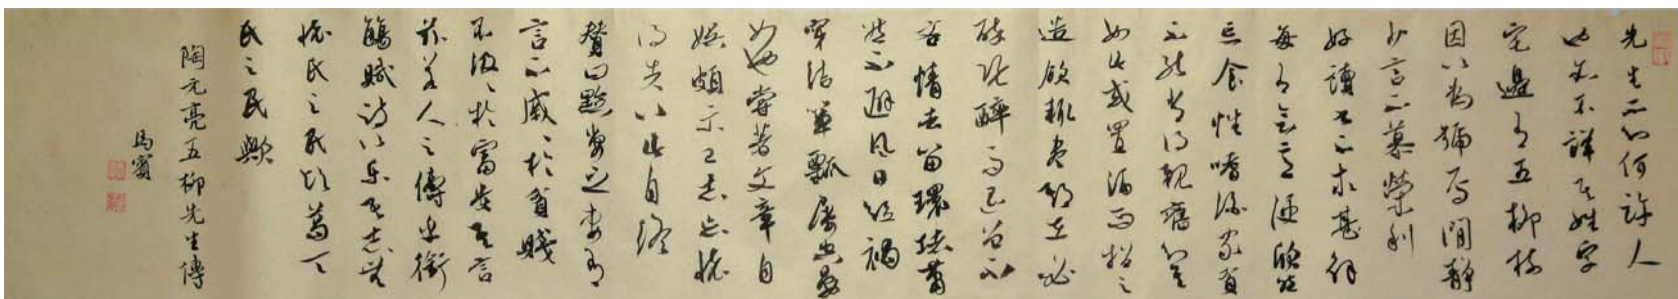 先生不知何許人
也亦不詳其姓字
宅邊有五柳樹
因以為號焉閒靜
少言不慕榮利
好讀書不求甚解
每有會意便欣然
忘食性嗜酒家貧
不能常得親舊知其
如此或置酒而招之
造飲輒盡期在必
醉既醉而退曾不
吝情去留環堵蕭
然不避風日短褐
穿結簞瓢屢空晏
如也常著文章自
娛頗示己志忘懷
得失以此自終
贊曰黔婁之妻有
言不戚戚於貧賤
不汲汲於富貴其言
茲若人之儔乎銜
觴賦詩以樂其志無
懷氏之民歟葛天
氏之民歟
陶元亮五柳先生傳
馬賓